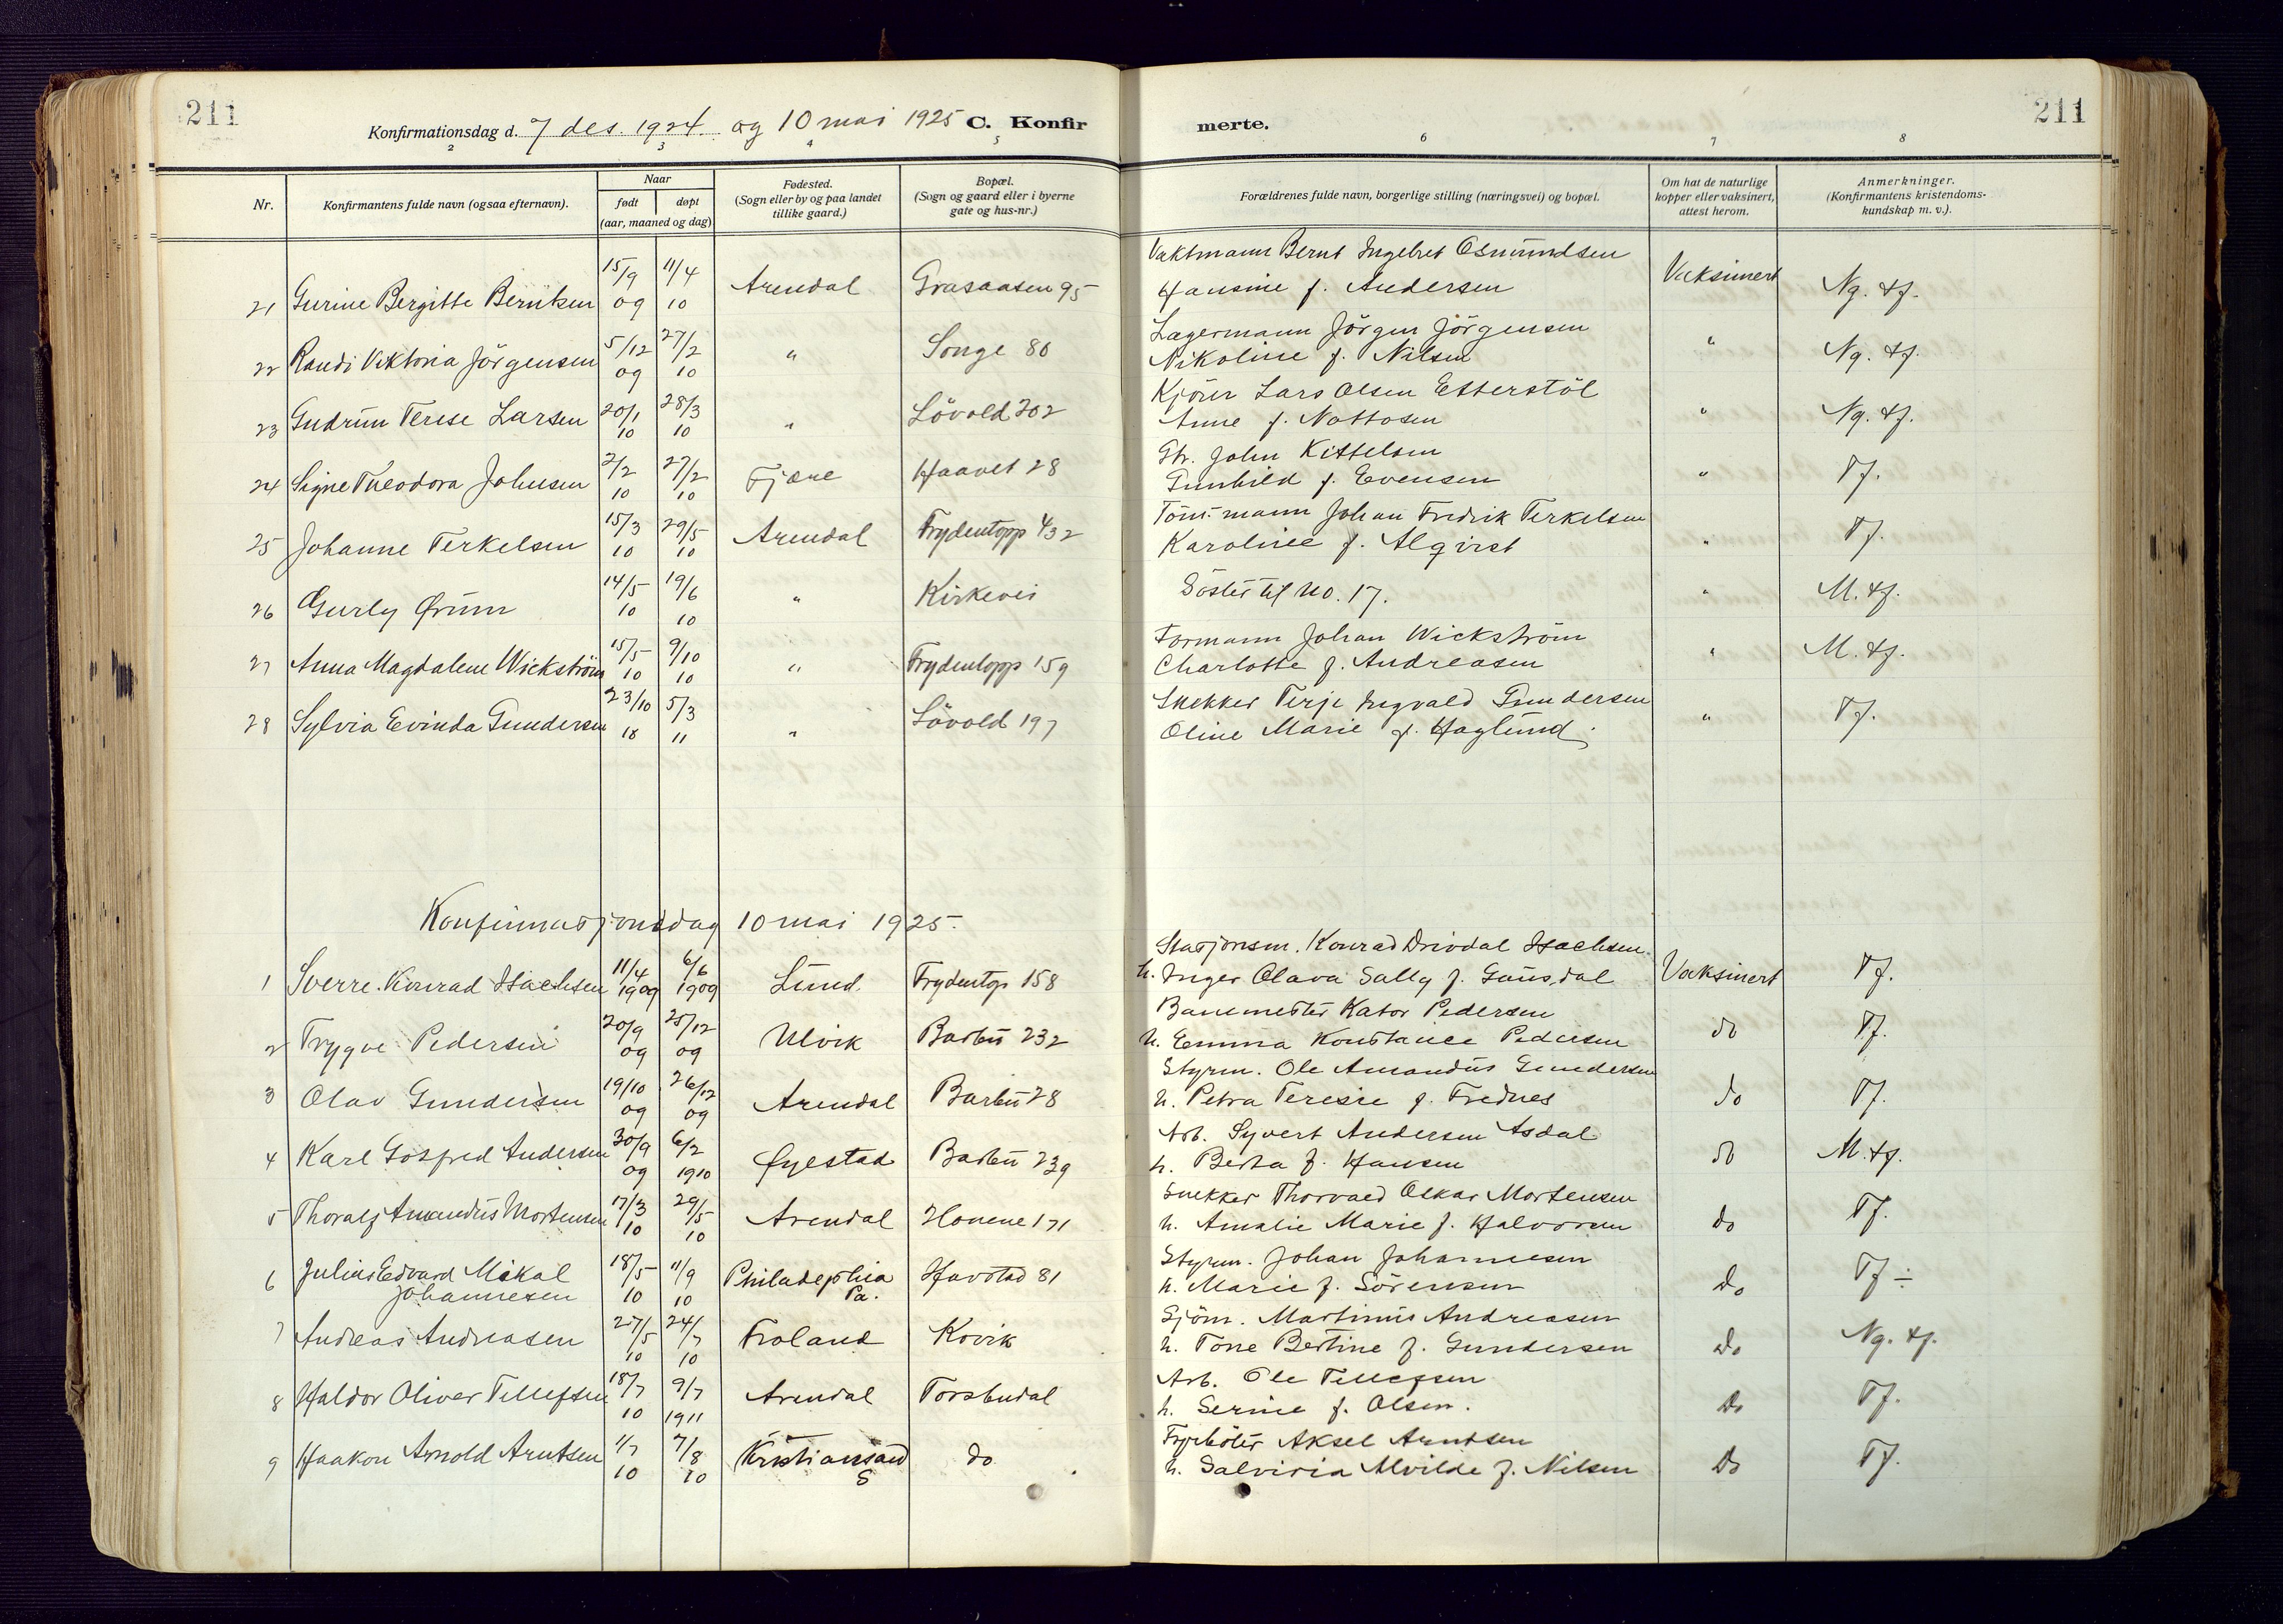 211
211
Konfirmationsdag d. 7 des. 1924. og 10 mai 1925 C. Konfirmerte.
2 3 4 5 6 7 8
Nr.
Konfirmantens fulde navn (ogsaa efternavn).
Naar
født døpt
(aar, maaned og dag)
Fødested.
(Sogn eller by og paa landet
tillike gaard.)
Bopæl.
(Sogn og gaard eller i byerne
gate og hus-nr.)
Forældrenes fulde navn, borgerlige stilling (næringsvei) og bopæl.
Om hat de naturlige
kopper eller vaksinert,
attest herom.
Anmerkninger.
(Konfirmantens kristendoms-
kundskap m. v.).
21 Gurine Bergitte Berntsen 15/9 09 11/4 10 Arendal Grasaasen 95 Vaktmann Bernt Ingebret Osmundsen
Hansine f. Andersen Vaksinert Ng. tf.
22 Randi Viktoria Jörgensen 5/12 09 27/2 10 " Songe 80 Lagermann Jörgen Jörgensen
Nikoline f. Nilsen " Ng. tf.
23 Gudrun Terese Larsen 20/1 10 28/3 10 " Lövold 202 Kjörer Lars Olsen Etterstöl
Anne f. Nottosen " Ng. tf.
24 Signe Theodora Johnsen 2/2 10 27/2 10 Fjære Haavet 28 John Kittelsen
Gunhild f. Evensen " Tf.
25 Johanne Terkelsen 15/3 10 29/5 10 Arendal Frydentopp 432 Töm.mann Johan Fredrik Terkelsen
Karoline f. Alqvist " Tf.
26 Gurly Ørum 14/5 10 19/6 10 " Kirkevei Söster til no. 17. " M. tf.
27 Anna Magdalene Wickström 15/5 10 9/10 10 " Frydentopp 159 Formann Johan Wickström
Charlotte f. Andreasen " M. tf.
28 Sylvia Evinda Gundersen 23/10 10 5/3 11 " Lövold 197 Snekker Terje Ingvald Gundersen
Oline Marie f. Haglund. " Tf.
Konfirmasjonsdag 10 mai 1925.
1 Sverre Konrad Isachsen 11/4 1909 6/6 1909 Lund. Frydentop 158 Stasjonsm. Konrad Drivdal Isachsen
h. Inger Olava Sally f. Gausdal Vaksinert Tf.
2 Trygve Pedersen 20/9 09 25/12 09 Ulvik Barbu 232 Banemester Kator Pedersen
h. Emma Konstance Pedersen do Tf.
3 Olav Gundersen 19/10 09 26/12 09 Arendal Barbu 28 Styrm. Ole Amandus Gundersen
h. Petra Teresie f. Frednes do Tf.
4 Karl Gotfred Andersen 30/9 09 6/2 1910 Øyestad Barbu 239 Arb. Syvert Andersen Asdal
h. Berta f. Hansen do M. tf.
5 Thoralf Amandus Mortensen 17/3 10 29/5 10 Arendal Honene 171 Snekker Thorvald Oskar Mortensen
h. Amalie Marie f. Halvorsen do Tf.
6 Julius Edvard Mikal
Johannesen 18/5 10 11/9 10 Philadephia
Pa. Havstad 81 Styrm. Johan Johannesen
h. Marie f. Sörensen do Tf ÷
7 Andreas Andreasen 27/5 10 24/7 10 Froland Kovik Sjöm. Martinus Andreasen
h. Tone Bertine f. Gundersen do Ng. tf.
8 Haldor Oliver Tellefsen 18/7 10 9/7 1911 Arendal Torsbudal Arb. Ole Tellefsen
h. Serine f. Olsen. do Tf.
9 Haakon Arnold Arntsen 1/7 10 7/8 10 Kristiansand
S do Fyrböter Aksel Arntsen
h. Salvine Alvilde f. Nilsen do Tf.